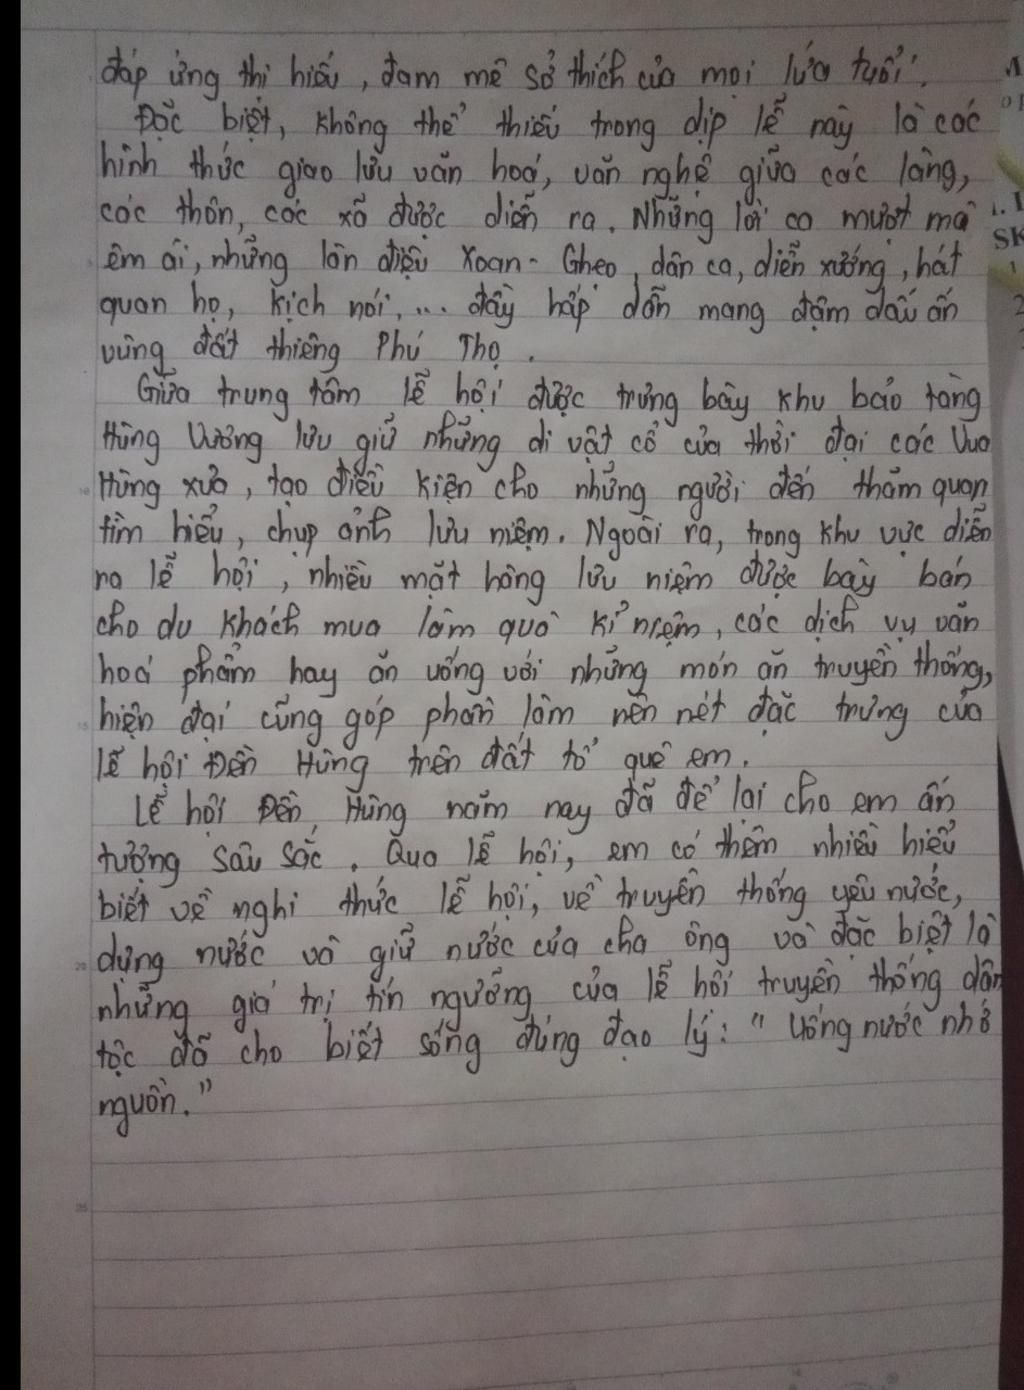 đáp ứng thị hiếu, đam mê sở thích của mọi lứa tuổi.
Đặc biệt, không thể thiếu trong dịp lễ này là các
hình thức giao lưu văn hoá, văn nghệ giữa các làng,
các thôn, các xã được diễn ra. Những lời ca mượt mà
êm ái, những làn điệu Xoan - Ghẹo, dân ca, diễn xướng, hát
quan họ, kịch nói, ... đầy hấp dẫn mang đậm dấu ấn
vùng đất thiêng Phú Thọ.
Giữa trung tâm lễ hội được trưng bày khu bảo tàng
Hùng Vương lưu giữ những di vật cổ của thời đại các Vua
Hùng xưa, tạo điều kiện cho những người đến thăm quan
tìm hiểu, chụp ảnh lưu niệm. Ngoài ra, trong khu vực diễn
ra lễ hội, nhiều mặt hàng lưu niệm được bày bán
cho du khách mua làm quà kỉ niệm, các dịch vụ văn
hoá phẩm hay ăn uống với những món ăn truyền thống,
hiện đại cũng góp phần làm nên nét đặc trưng của
lễ hội Đền Hùng trên đất tổ quê em.
Lễ hội Đền Hùng năm nay đã để lại cho em ấn
tượng sâu sắc. Qua lễ hội, em có thêm nhiều hiểu
biết về nghi thức lễ hội, về truyền thống yêu nước,
dựng nước và giữ nước của cha ông và đặc biệt là
những giá trị tín ngưỡng của lễ hội truyền thống dân
tộc đã cho biết sống đúng đạo lý: "Uống nước nhớ
nguồn."